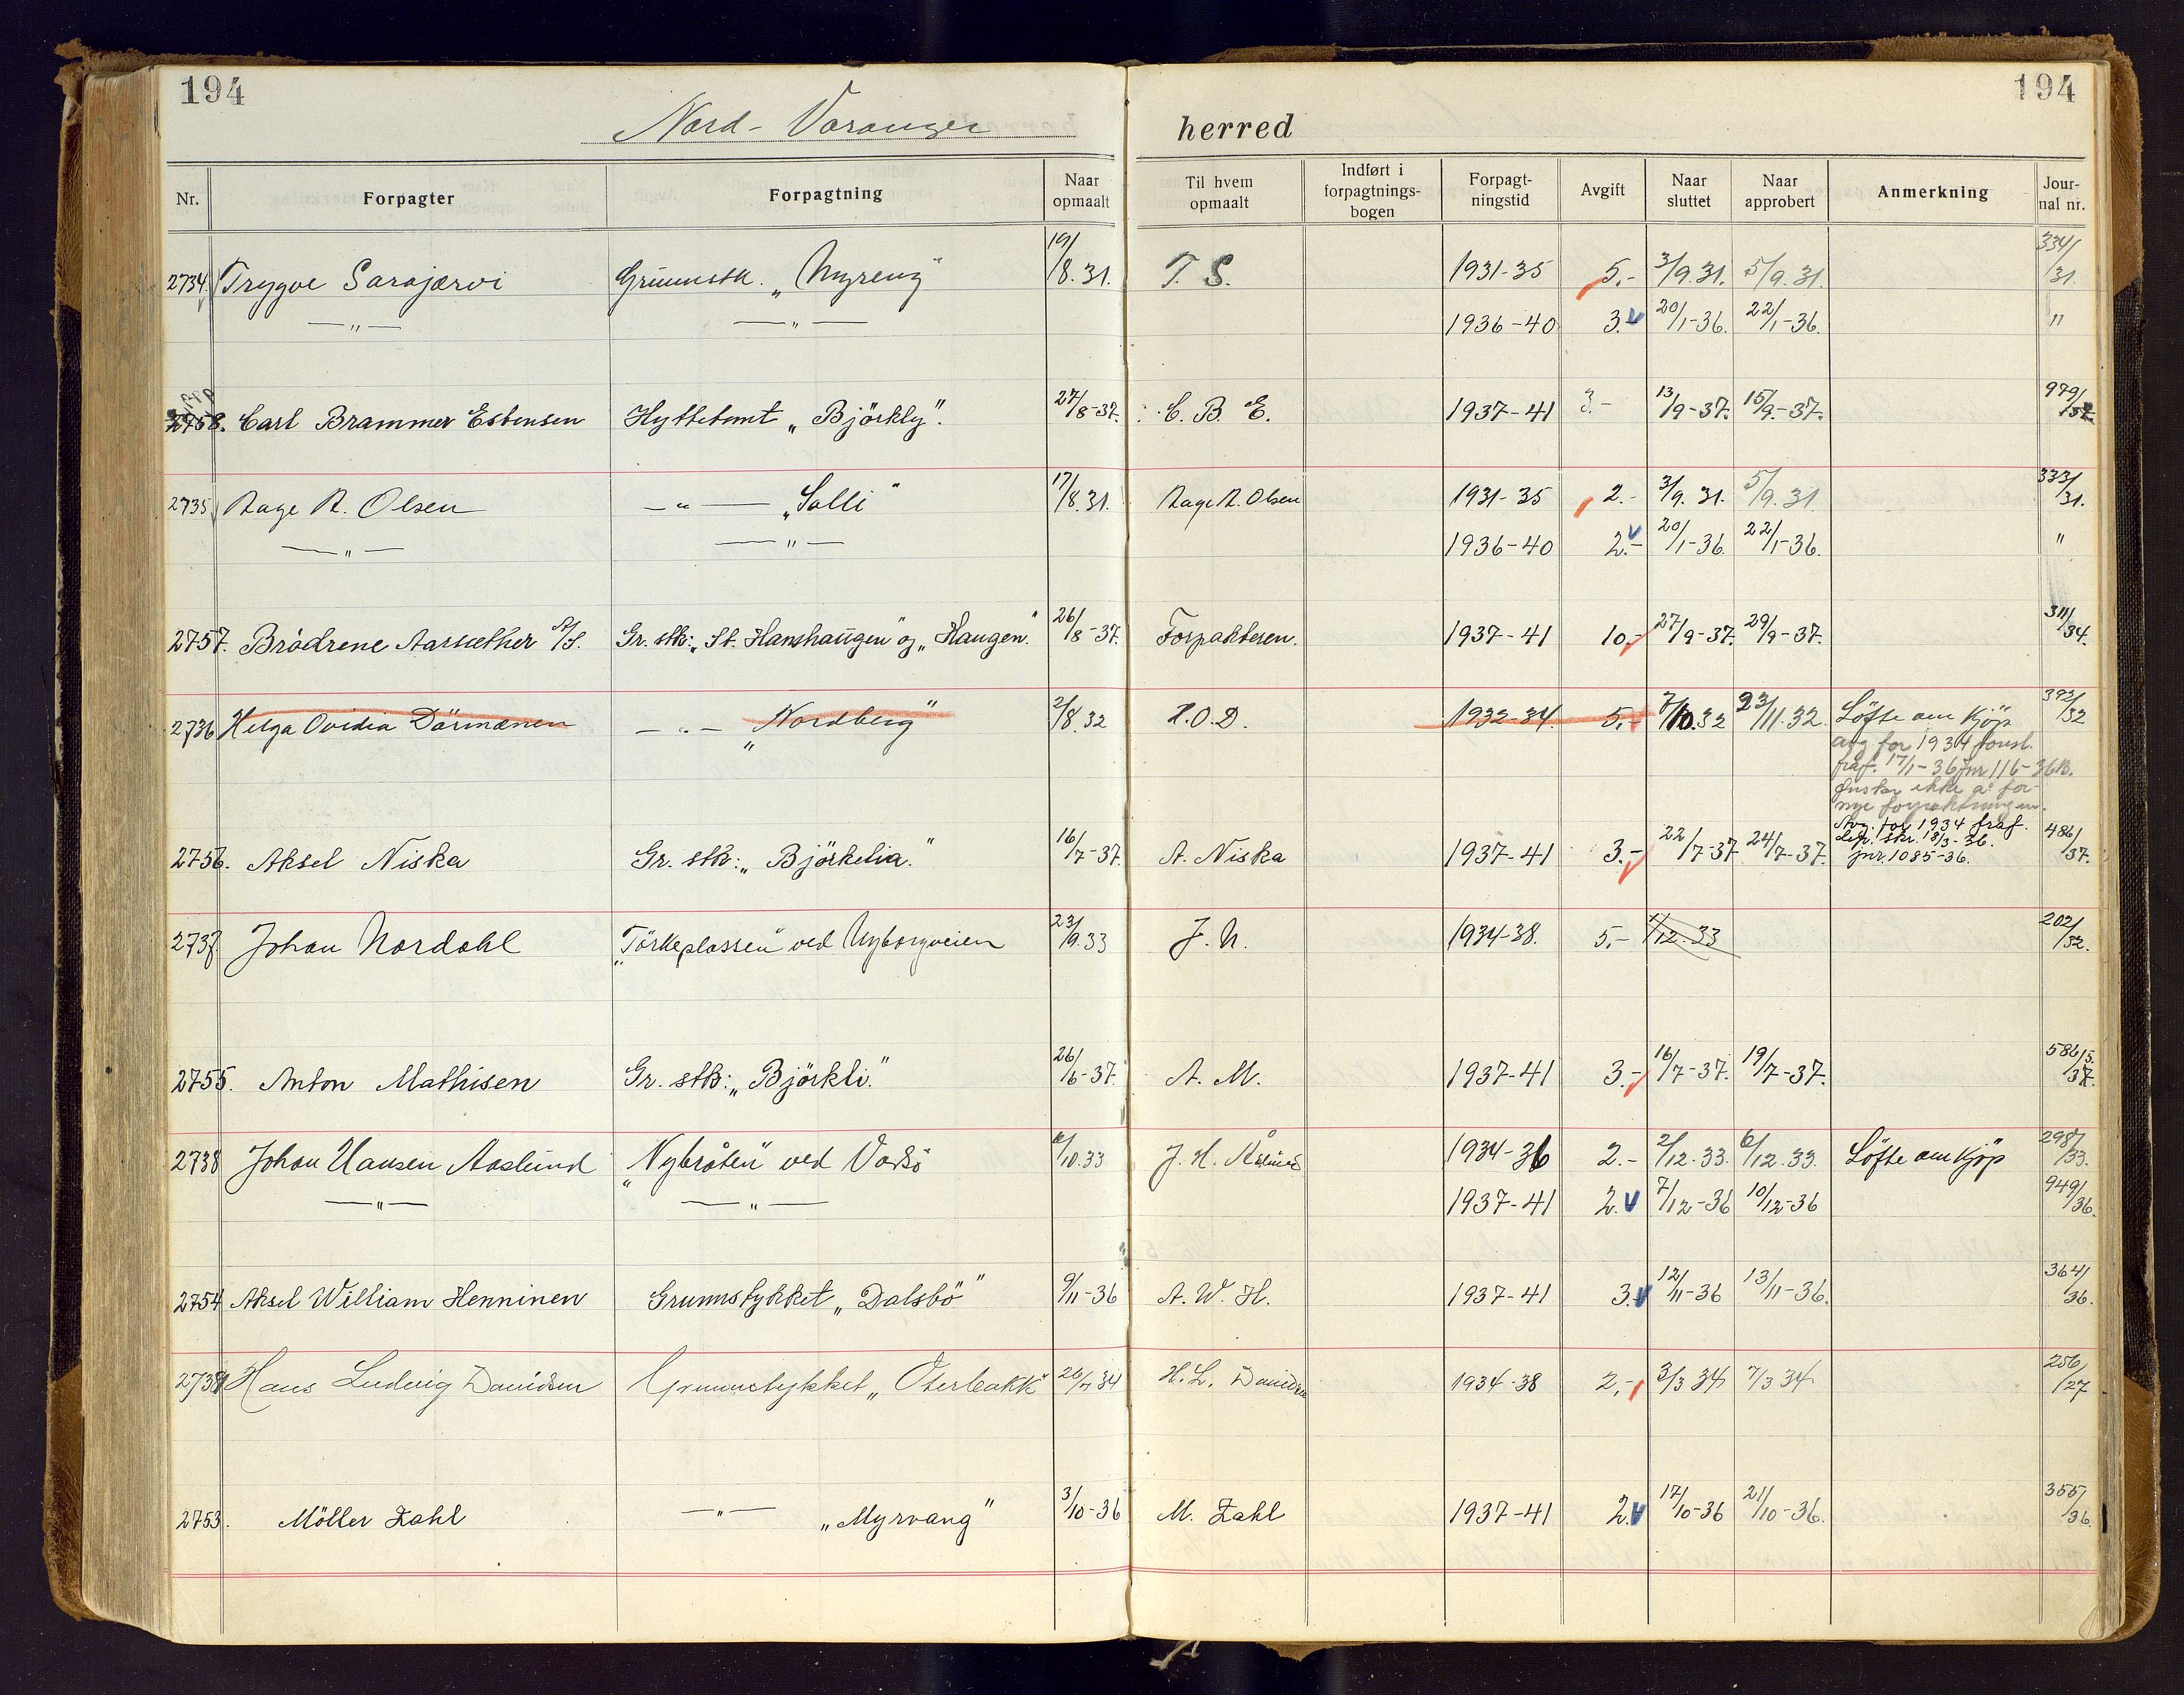 194 194
Nord-Varanger herred
Nr. Forpagter Forpagtning Naar opmaalt Til hvem opmaalt Indført i forpagtnings-bogen Forpagt-ningstid Avgift Naar sluttet Naar approbert Anmerkning Jour-nal nr.
2734. Trygve Sarajærvi Grunnstk. „Myreng" 19/8.31. T. S. 1931-35 5.- 3/9.31. 5/9.31. 334/31.
—„— —„— 1936-40 3.- 20/1-36. 22/1-36. "
2758. Carl Brammer Esbensen Hyttetomt „Björkly". 27/8-37. C. B. E. 1937-41 3.- 13/9-37. 15/9-37. 979/
2735 Aage R. Olsen —„— „Solli" 17/8.31. Aage R. Olsen 1931-35 2.- 3/9.31. 5/9.31. 333/31.
—„— —„— 1936-40 2.- 20/1-36. 22/1-36. "
2757. Brödrene Aarsæther A/S. Gr. stk: „St. Hanshaugen" og „Haugen." 26/8-37. Forpakteren. 1937-41 10.- 27/9-37. 29/9-37. 311/34.
2736 Helga Ovidia Därmænen —„— „Nordberg" 2/8.32 H.O.D. 1932-34. 5.- 7/10.32 23/11.32. Löfte om kjöp 392/32
avg for 1934 foresl.
fraf. 17/1-36 jnr 116-36B.
Ønsker ikke å for-
nye forpaktningen.
Avg. for 1934 fraf.
dep. skr. 18/3-36.
jnr. 1085-36.
2756. Aksel Niska Gr. stk: „Björkelia." 16/7-37. A. Niska 1937-41 3.- 22/7-37 24/7-37. 486/37.
2737 Johan Nordahl „Törkeplassen" ved Nyborgveien 23/9.33 J. N. 1934-38. 5.- 1/12.33 202/32.
2755. Anton Mathisen Gr. stk: „Björkli." 26/6-37. A. M. 1937-41 3.- 16/7-37. 19/7-37. 586/37.
2738 Johan Hansen Aaslund „Nybråten" ved Vadsö /10.33 J. H. Åslund 1934-36 2.- 2/12.33. 6/12.33. Löfte om kjöp 298/33.
—„— —„— 1937-41 2. 7/12-36 10/12-36 949/36.
2754 Aksel William Henninen Grunnstykket „Dalsbö" 9/11-36 A. W. H. 1937-41 3. 12/11-36 13/11-36. 364/36.
2739 Hans Ludvig Davidsen Grunnstykket „Oterbakk" 34 H. L. Davidsen 1934-38 2,- 3/3 34 7/3 34 256/27
2753. Möller Zahl —„— „Myrvang" 3/10-36 M. Zahl 1937-41 2. 17/10-36 21/10-36. 355/36.